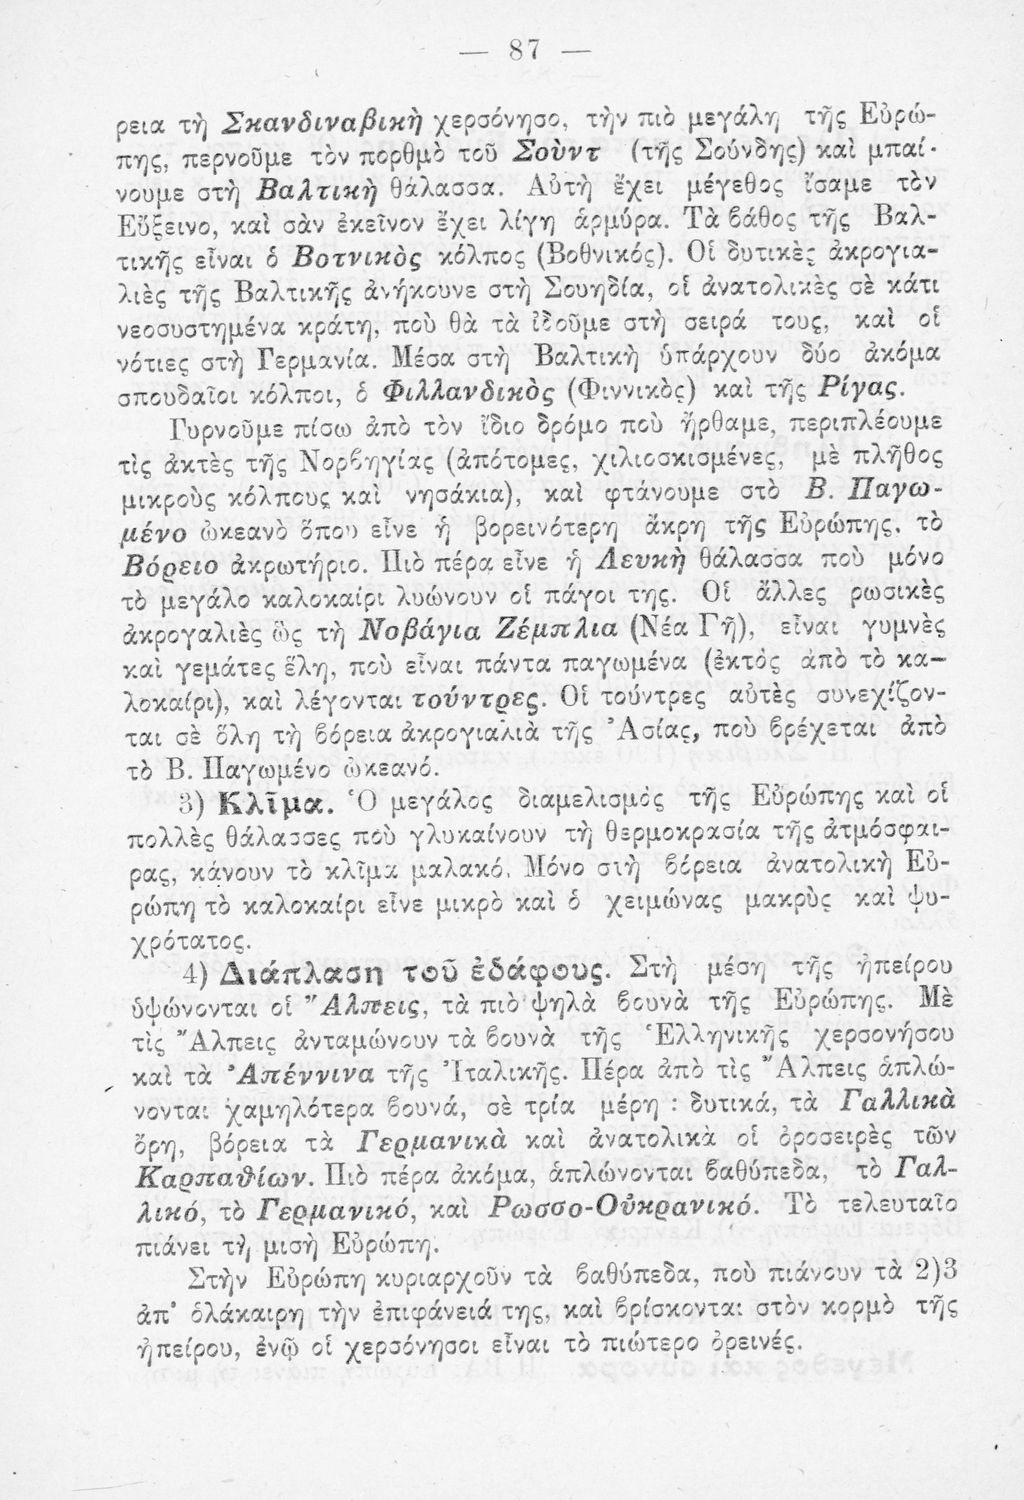 — 87 —
ρεια τὴ Σκανδιναβικὴ χερσόνησο, τὴν πιὸ μεγάλη τῆς Εὐρώ-
πης, περνοῦμε τὸν πορθμὸ τοῦ Σοὺντ (τῆς Σούνδης) καὶ μπαί-
νουμε στὴ Βαλτικὴ θάλασσα. Αὐτὴ ἔχει μέγεθος ἴσαμε τὸν
Εὔξεινο, καὶ σὰν ἐκεῖνον ἔχει λίγη ἁρμύρα. Τὰ βάθος τῆς Βαλ-
τικῆς εἶναι ὁ Βοτνικὸς κόλπος (Βοθνικός). Οἱ δυτικὲς ἀκρογια-
λιὲς τῆς Βαλτικῆς ἀνήκουνε στὴ Σουηδία, οἱ ἀνατολικὲς σὲ κάτι
νεοσυστημένα κράτη, ποὺ θὰ τὰ ἰδοῦμε στὴ σειρά τους, καὶ οἱ
νότιες στὴ Γερμανία. Μέσα στὴ Βαλτικὴ ὑπάρχουν δύο ἀκόμα
σπουδαῖοι κόλποι, ὁ Φιλλανδικὸς (Φιννικὸς) καὶ τῆς Ρίγας.
Γυρνοῦμε πίσω ἀπὸ τὸν ἴδιο δρόμο ποὺ ἤρθαμε, περιπλέουμε
τὶς ἀκτὲς τῆς Νορβηγίας (ἀπότομες, χιλιοσκισμένες, μὲ πλῆθος
μικροὺς κόλπους καὶ νησάκια), καὶ φτάνουμε στὸ Β. Παγω-
μένο ὠκεανὸ ὅπου εἶνε ἡ βορεινότερη ἄκρη τῆς Εὐρώπης, τὸ
Βόρειο ἀκρωτήριο. Πιὸ πέρα εἶνε ἡ Λευκὴ θάλασσα ποὺ μόνο
τὸ μεγάλο καλοκαίρι λυώνουν οἱ πάγοι της. Οἱ ἄλλες ρωσικὲς
ἀκρογαλιὲς ὣς τὴ Νοβάγια Ζέμπλια (Νέα Γῆ), εἶναι γυμνὲς
καὶ γεμάτες ἕλη, ποὺ εἶναι πάντα παγωμένα (ἐκτὸς ἀπὸ τὸ κα-
λοκαίρι), καὶ λέγονται τούντρες. Οἱ τούντρες αὐτὲς συνεχίζον-
ται σὲ ὅλη τὴ βόρεια ἀκρογιαλιὰ τῆς Ἀσίας, ποὺ βρέχεται ἀπὸ
τὸ Β. Παγωμένο ὠκεανό.
3) Κλῖμα. Ὁ μεγάλος διαμελισμὸς τῆς Εὐρώπης καὶ οἱ
πολλὲς θάλασσες ποὺ γλυκαίνουν τὴ θερμοκρασία τῆς ἀτμόσφαι-
ρας, κάνουν τὸ κλῖμα μαλακό. Μόνο στὴ βόρεια ἀνατολικὴ Εὐ-
ρώπη τὸ καλοκαίρι εἶνε μικρὸ καὶ ὁ χειμώνας μακρὺς καὶ ψυ-
χρότατος.
4) Διάπλαση τοῦ ἐδάφους. Στὴ μέση τῆς ἠπείρου
ὑψώνονται οἱ Ἄλπεις, τὰ πιὸ ψηλὰ βουνὰ τῆς Εὐρώπης. Μὲ
τὶς Ἄλπεις ἀνταμώνουν τὰ βουνὰ τῆς Ἑλληνικῆς χερσονήσου
καὶ τὰ Ἀπέννινα τῆς Ἰταλικῆς. Πέρα ἀπὸ τὶς Ἄλπεις ἁπλώ-
νονται χαμηλότερα βουνά, σὲ τρία μέρη : δυτικά, τὰ Γαλλικὰ
ὄρη, βόρεια τὰ Γερμανικὰ καὶ ἀνατολικὰ οἱ ὀροσειρὲς τῶν
Καρπαθίων. Πιὸ πέρα ἀκόμα, ἁπλώνονται βαθύπεδα, τὸ Γαλ-
λικό, τὸ Γερμανικό, καὶ Ρωσσο-Οὐκρανικό. Τὸ τελευταῖο
πιάνει τὴ μισὴ Εὐρώπη.
Στὴν Εὐρώπη κυριαρχοῦν τὰ βαθύπεδα, ποὺ πιάνουν τὰ 2)3
ἀπ' ὁλάκαιρη τὴν ἐπιφάνειά της, καὶ βρίσκονται στὸν κορμὸ τῆς
ἠπείρου, ἐνῷ οἱ χερσόνησοι εἶναι τὸ πιώτερο ὀρεινές.